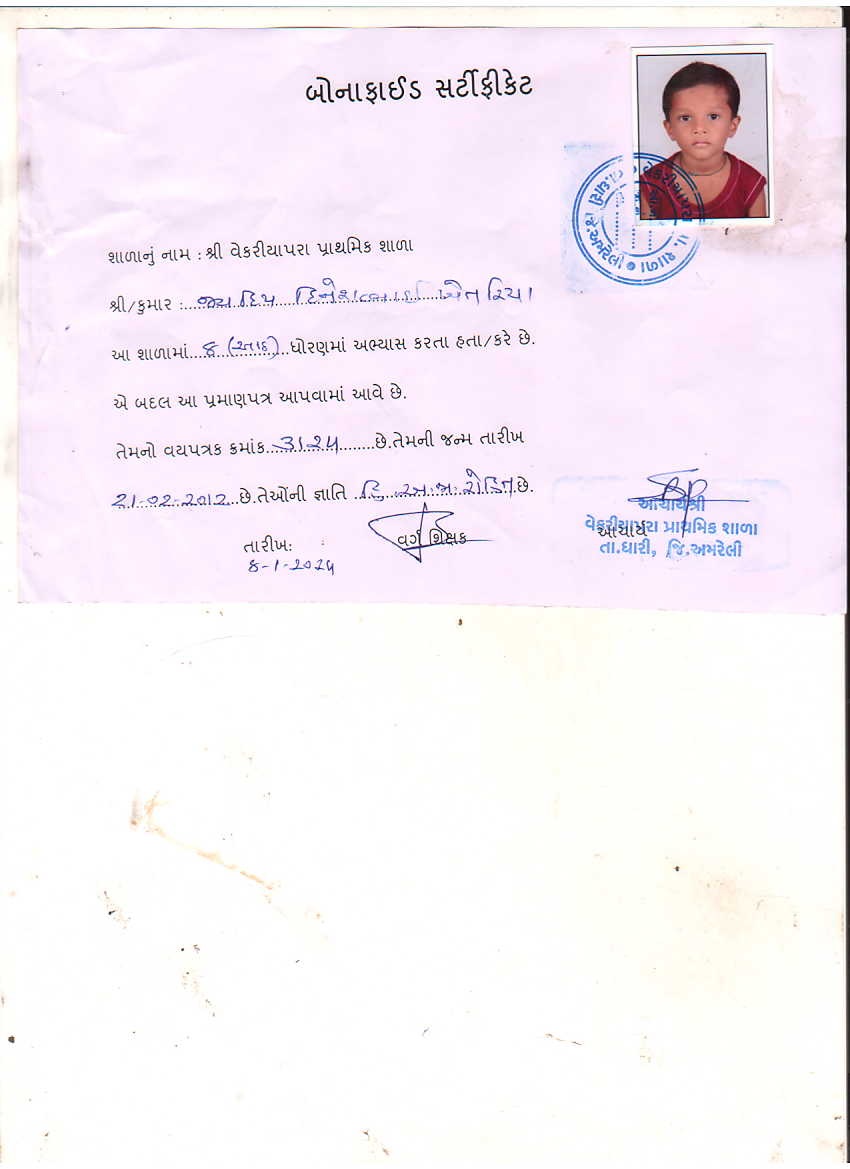 બોનાફાઈડ સર્ટીફીકેટ
શાળાનું નામ : શ્રી વેકરીયાપરા પ્રાથમિક શાળા
શ્રી/કુમાર :...જયદિપ દિનેશભાઈ ખેતરિયા
આ શાળામાં...૪ (આઠ)...ધોરણમાં અભ્યાસ કરતા હતા/કરે છે.
એ બદલ આ પ્રમાણપત્ર આપવામાં આવે છે.
તેમનો વયપત્રક ક્રમાંક..3124........છે.તેમની જન્મ તારીખ
21-02-2012..છે.તેઓની જ્ઞાતિ ..હિ.અ.જા.રોહિત.છે.
તારીખ:
વર્ગ શિક્ષક
આચાર્ય
8-1-2024
આચાર્યશ્રી
વેકરીયાપરા પ્રાથમિક શાળા
તા.ધારી, જિ.અમરેલી
વેકરીયાપરા પ્રા.શાળા તા.ધારી જિ.અમરેલી